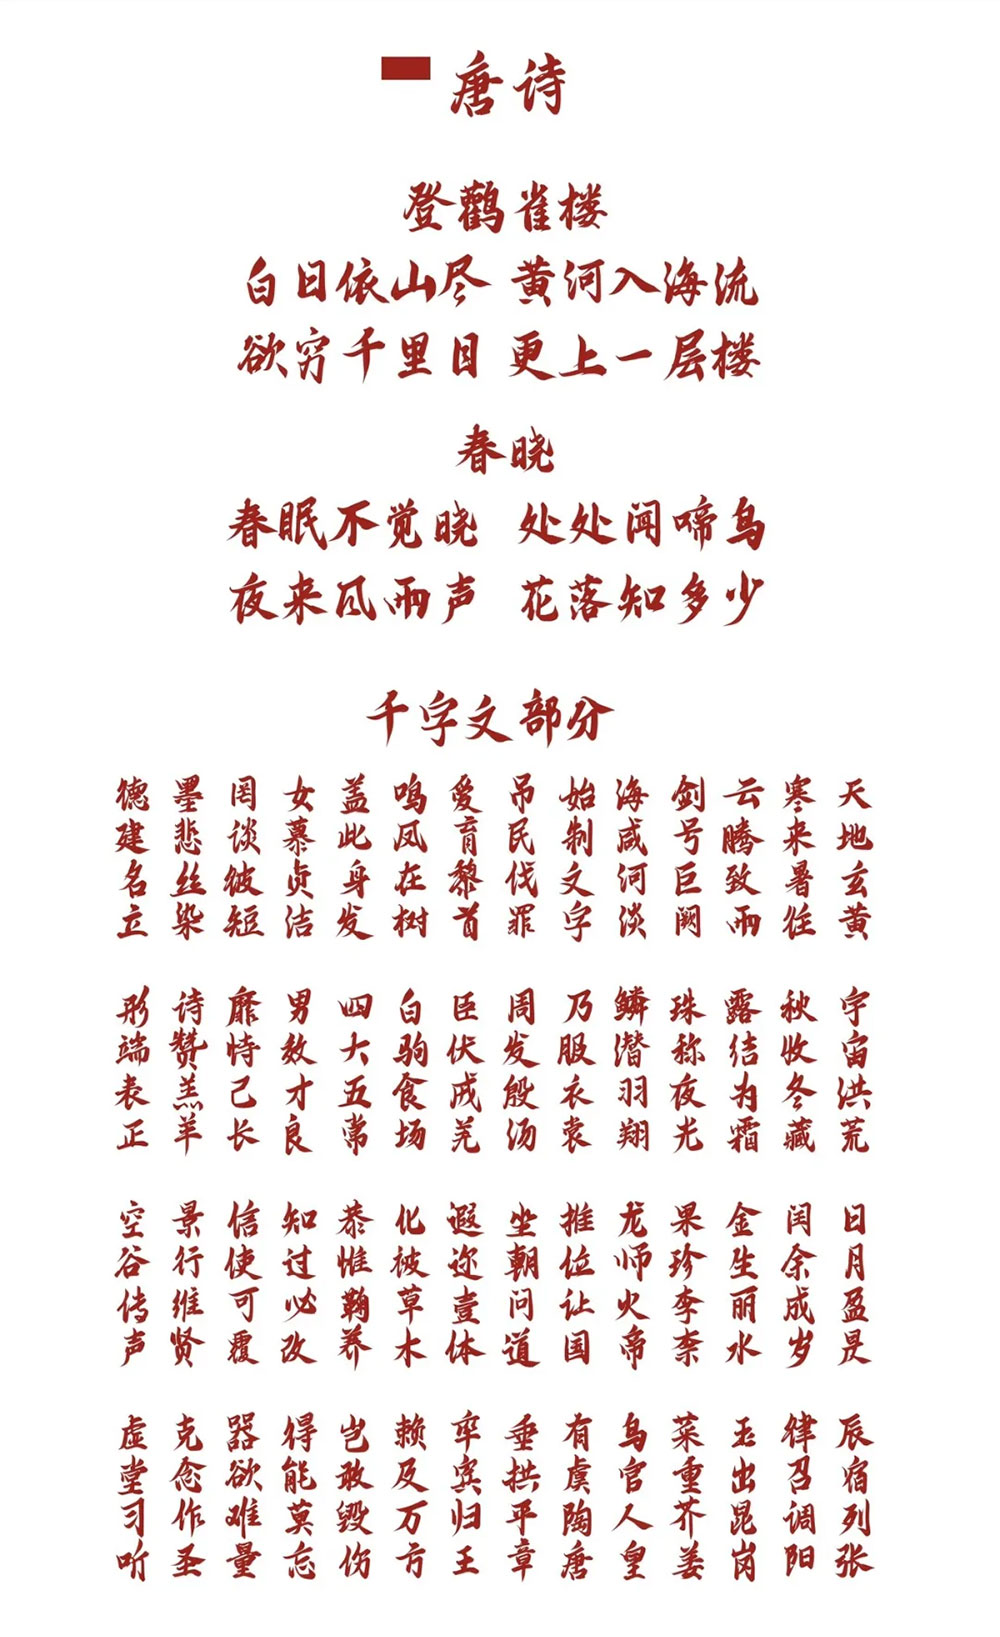 唐诗
登鹳雀楼
白日依山尽 黄河入海流
欲穷千里目 更上一层楼
春晓
春眠不觉晓 处处闻啼鸟
夜来风雨声 花落知多少
千字文部分
天地玄黄 宇宙洪荒 日月盈昃 辰宿列张
寒来暑往 秋收冬藏 闰余成岁 律召调阳
云腾致雨 露结为霜 金生丽水 玉出昆岗
剑号巨阙 珠称夜光 果珍李柰 菜重芥姜
海咸河淡 鳞潜羽翔 龙师火帝 鸟官人皇
始制文字 乃服衣裳 推位让国 有虞陶唐
吊民伐罪 周发殷汤 坐朝问道 垂拱平章
爱育黎首 臣伏戎羌 遐迩壹体 率宾归王
鸣凤在树 白驹食场 化被草木 赖及万方
盖此身发 四大五常 恭惟鞠养 岂敢毁伤
女慕贞洁 男效才良 知过必改 得能莫忘
罔谈彼短 靡恃己长 信使可覆 器欲难量
墨悲丝染 诗赞羔羊 景行维贤 克念作圣
德建名立 形端表正 空谷传声 虚堂习听